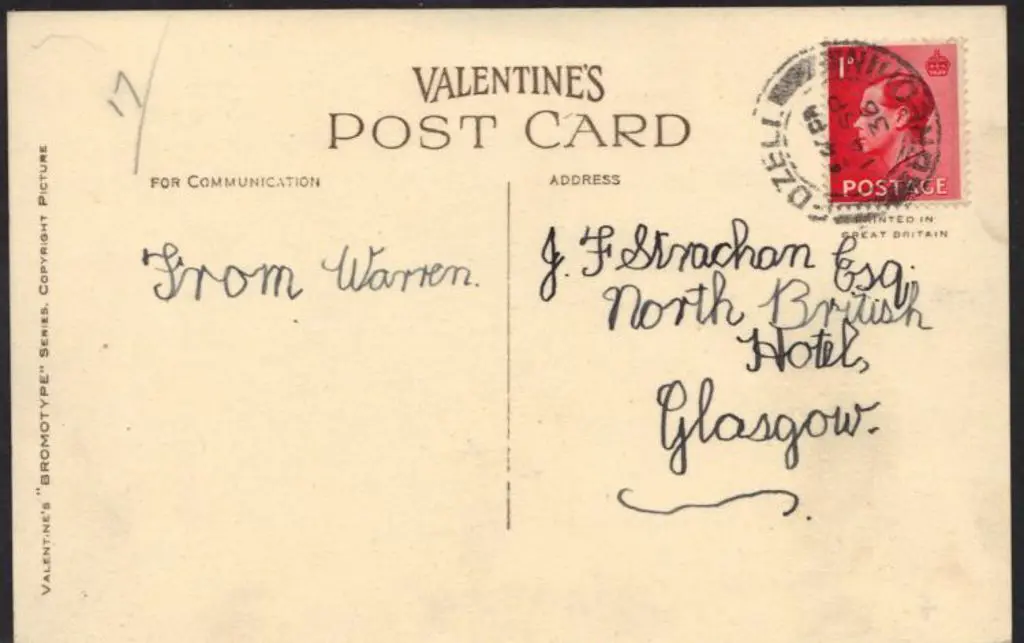 17
VALENTINE'S
POST CARD
FOR COMMUNICATION
ADDRESS
1D
POSTAGE
EDZELL
BRECHIN
36
PRINTED IN
GREAT BRITAIN
From Warren.
J. F Strachan Esq,
North British
Hotel,
Glasgow.
VALENTINE'S "BROMOTYPE" SERIES. COPYRIGHT PICTURE